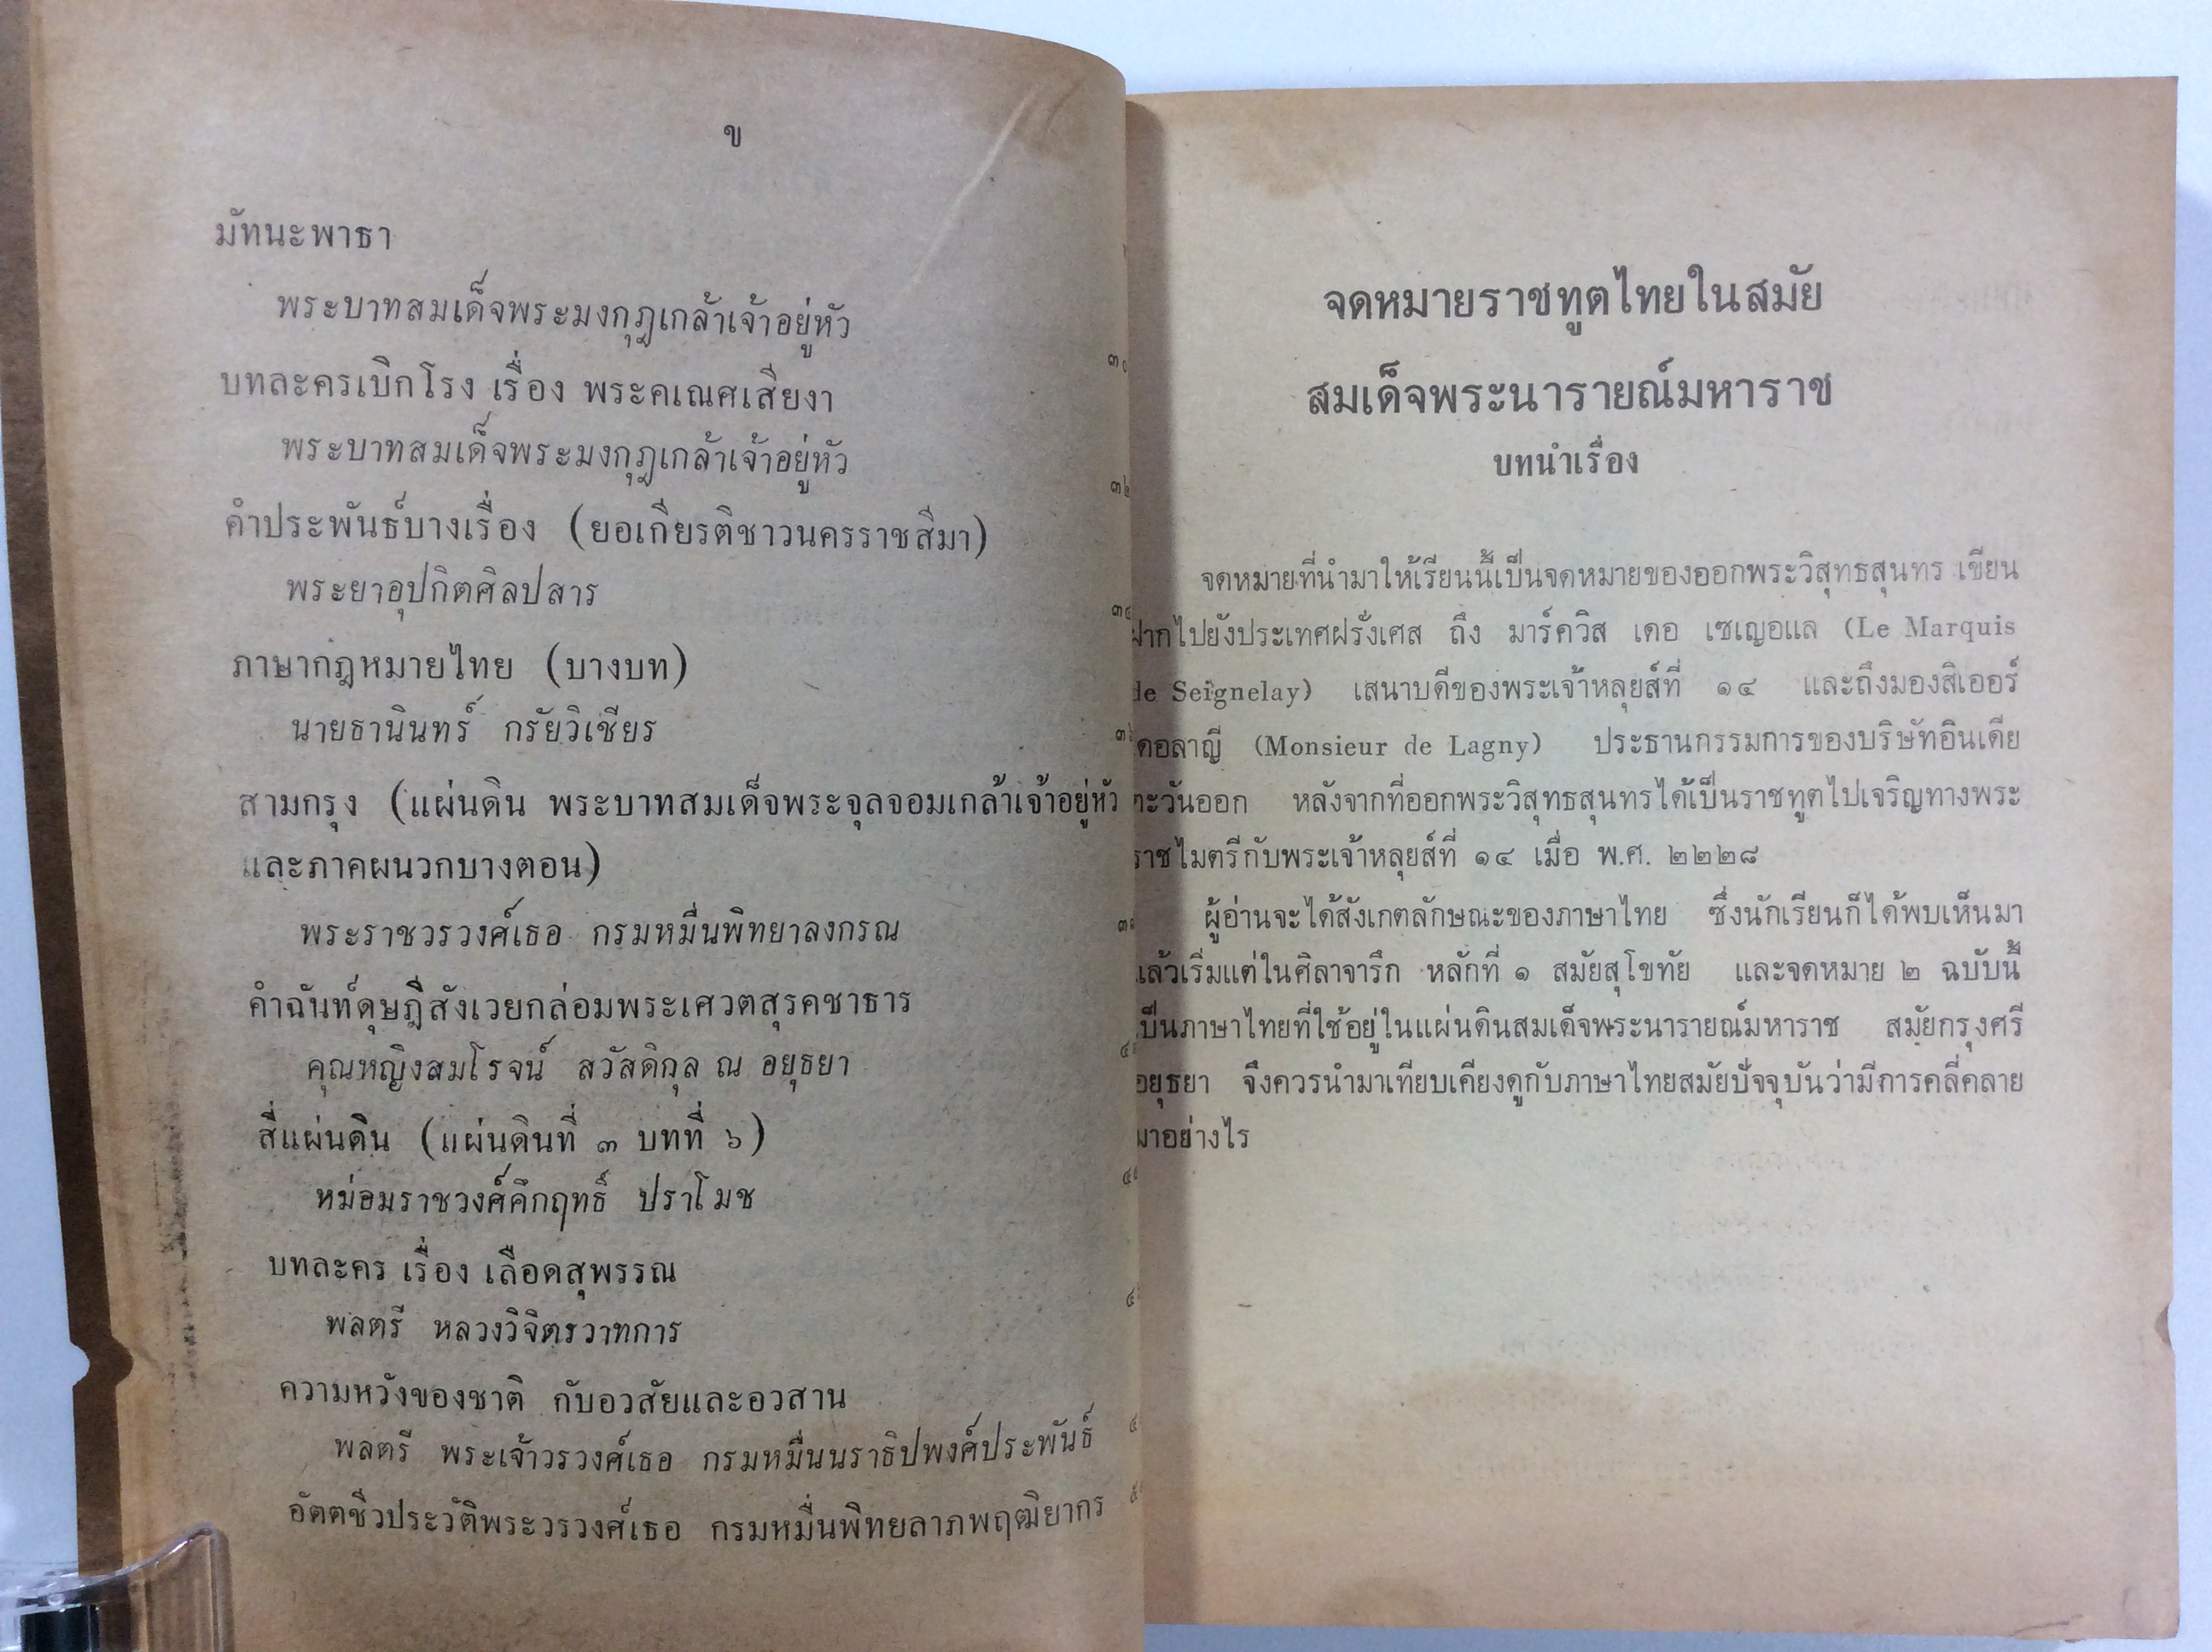 ข
มัทนะพาธา
พระบาทสมเด็จพระมงกุฎเกล้าเจ้าอยู่หัว
บทละครเบิกโรง เรื่อง พระคเณศเสียงา
พระบาทสมเด็จพระมงกุฎเกล้าเจ้าอยู่หัว
คำประพันธ์บางเรื่อง (ยอเกียรติชาวนครราชสีมา)
พระยาอุปกิตศิลปสาร
ภาษากฎหมายไทย (บางบท)
นายธานินทร์ กรัยวิเชียร
สามกรุง (แผ่นดิน พระบาทสมเด็จพระจุลจอมเกล้าเจ้าอยู่หัว
และภาคผนวกบางตอน)
พระราชวรวงศ์เธอ กรมหมื่นพิทยาลงกรณ
คำฉันท์ดุษฎีสังเวยกล่อมพระเศวตสุรคชาธาร
คุณหญิงสมโรจน์ สวัสดิกุล ณ อยุธยา
สี่แผ่นดิน (แผ่นดินที่ ๓ บทที่ ๖)
หม่อมราชวงศ์คึกฤทธิ์ ปราโมช
บทละคร เรื่อง เลือดสุพรรณ
พลตรี หลวงวิจิตรวาทการ
ความหวังของชาติ กับอวสัยและอวสาน
พลตรี พระเจ้าวรวงศ์เธอ กรมหมื่นนราธิปพงศ์ประพันธ์
อัตตชีวประวัติพระวรวงศ์เธอ กรมหมื่นพิทยลาภพฤฒิยากร
จดหมายราชทูตไทยในสมัย
สมเด็จพระนารายณ์มหาราช
บทนำเรื่อง
จดหมายที่นำมาให้เรียนนี้เป็นจดหมายของออกพระวิสุทธสุนทร เขียน
ฝากไปยังประเทศฝรั่งเศส ถึง มาร์ควิส เดอ เซเญอแล (Le Marquis
de Seignelay) เสนาบดีของพระเจ้าหลุยส์ที่ ๑๔ และถึงมองสิเออร์
ดอลาญี (Monsieur de Lagny) ประธานกรรมการของบริษัทอินเดีย
ตะวันออก หลังจากที่ออกพระวิสุทธสุนทรได้เป็นราชทูตไปเจริญทางพระ
ราชไมตรีกับพระเจ้าหลุยส์ที่ ๑๔ เมื่อ พ.ศ. ๒๒๒๘
ผู้อ่านจะได้สังเกตลักษณะของภาษาไทย ซึ่งนักเรียนก็ได้พบเห็นมา
แล้วเริ่มแต่ในศิลาจารึก หลักที่ ๑ สมัยสุโขทัย และจดหมาย ๒ ฉบับนี้
เป็นภาษาไทยที่ใช้อยู่ในแผ่นดินสมเด็จพระนารายณ์มหาราช สมัยกรุงศรี
อยุธยา จึงควรนำมาเทียบเคียงดูกับภาษาไทยสมัยปัจจุบันว่ามีการคลี่คลาย
มาอย่างไร